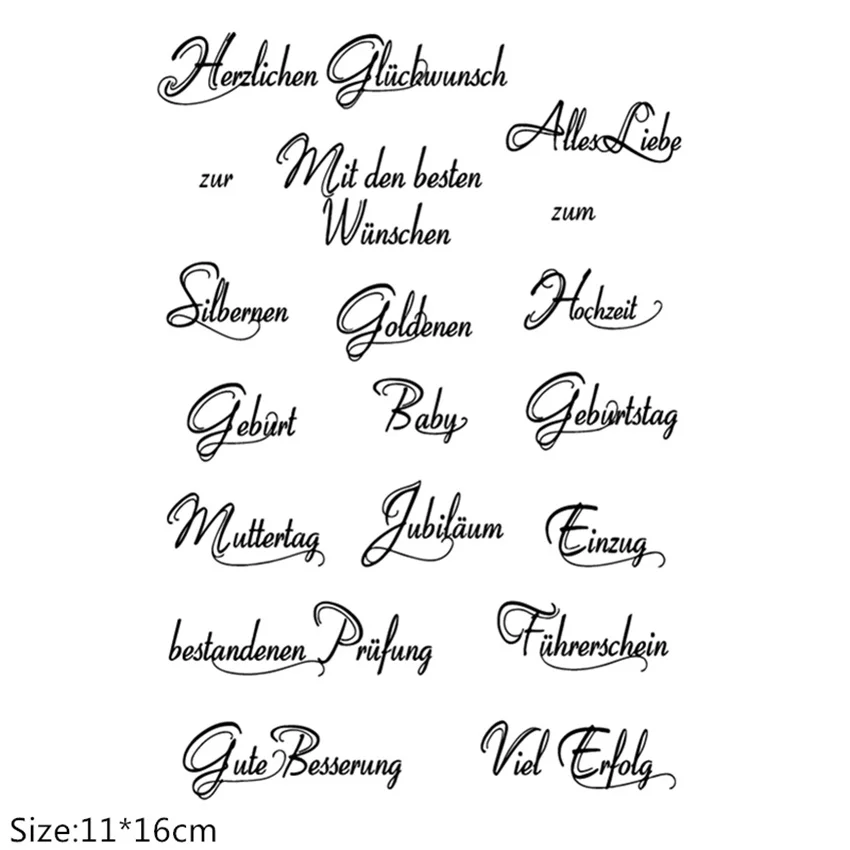 Herzlichen Glückwunsch
Alles Liebe
zur
Mit den besten
Wünschen
zum
Silbernen
Goldenen
Hochzeit
Geburt
Baby
Geburtstag
Muttertag
Jubiläum
Einzug
bestandenen Prüfung
Führerschein
Gute Besserung
Viel Erfolg
Size:11*16cm